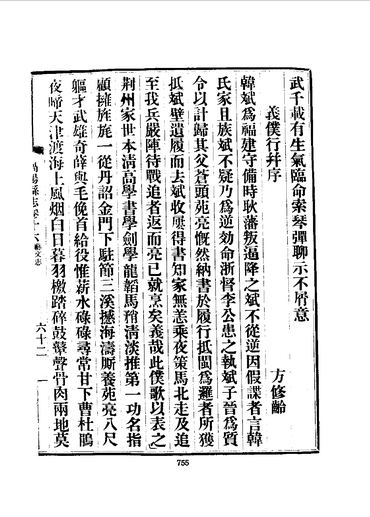 武千載有生氣臨命索琴彈聊示不屑意
義僕行幷序
方修齡
韓斌爲福建守備時耿藩叛逼降之斌不從逆因假諜者言韓
氏家且族斌不疑乃爲逆効命浙督李公患之執斌子晉爲質
令以計歸其父蒼頭苑亮慨然納書於履行抵閩爲邏者所獲
抵斌壁遺履而去斌收履得書知家無恙乘夜策馬北走及追
至我兵嚴陣待戰追者返而亮已就烹矣義哉此僕歌以表之
荆州家世本淸高學書學劍學龍韜馬矟淸淡推第一功名指
顧擁旌旄一從丹詔金門下駐節三溪撼海濤厮養苑亮八尺
軀才武雄奇薛與毛俛首給役惟薪水碌碌尋常甘下曹杜鵑
夜啼天津渡海上風烟白日暮羽檄踏碎鼓鼙聲骨肉兩地莫
縣志卷十六藝文志
六十二
755